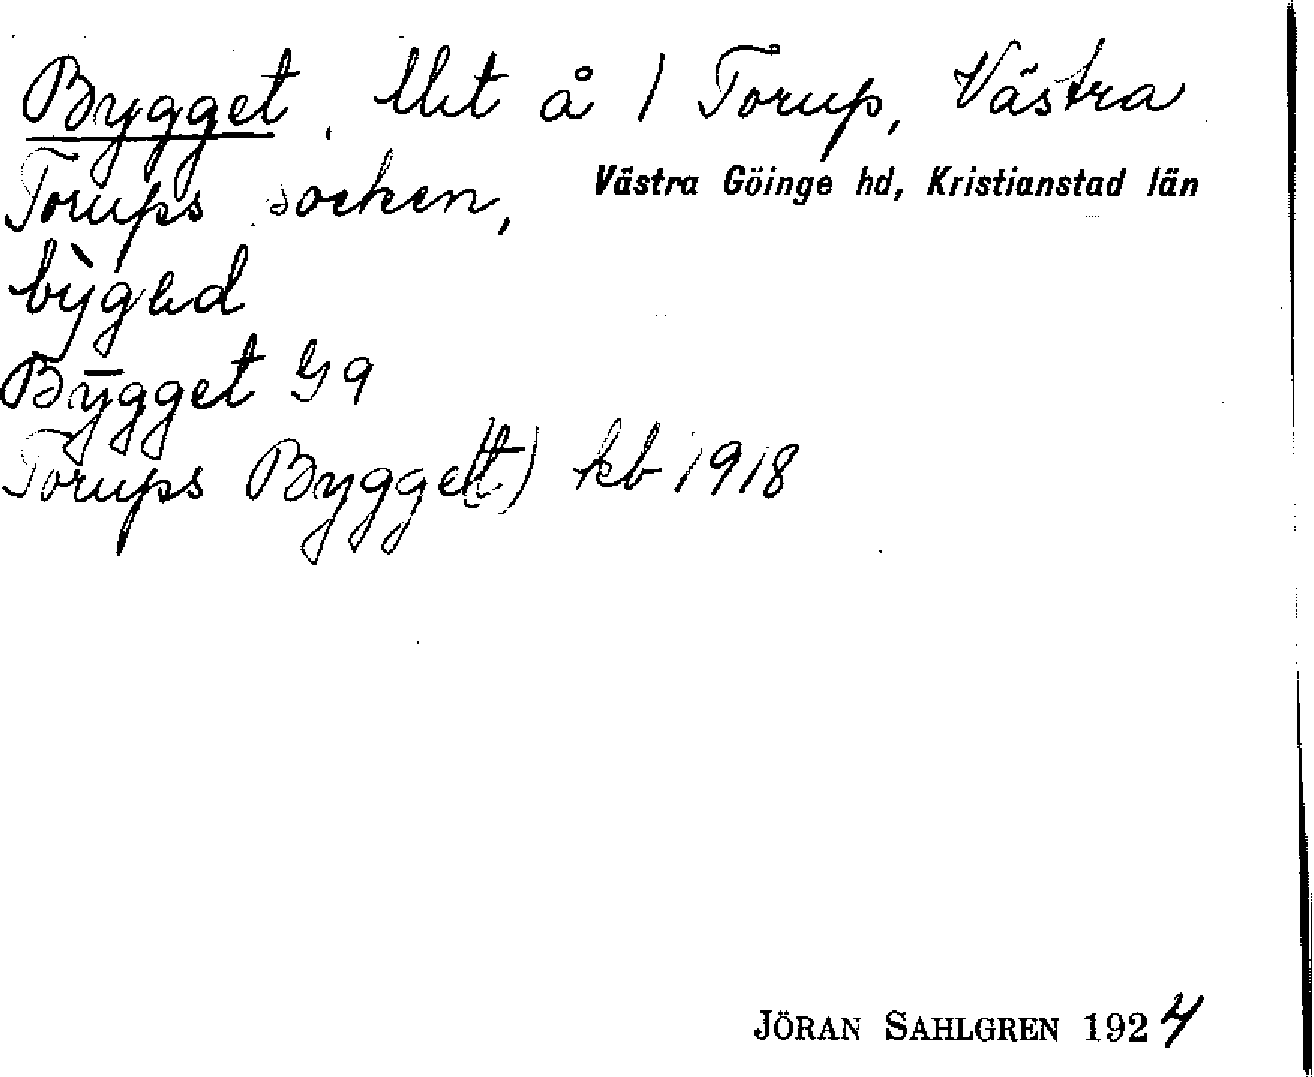 Bygget. Uht å 1 Torup, Västra
Torups socken, Västra Göinge hd, Kristianstad län
Bygget G9
Torups Bygge(t) kb 1918
JÖRAN SAHLGREN 1924